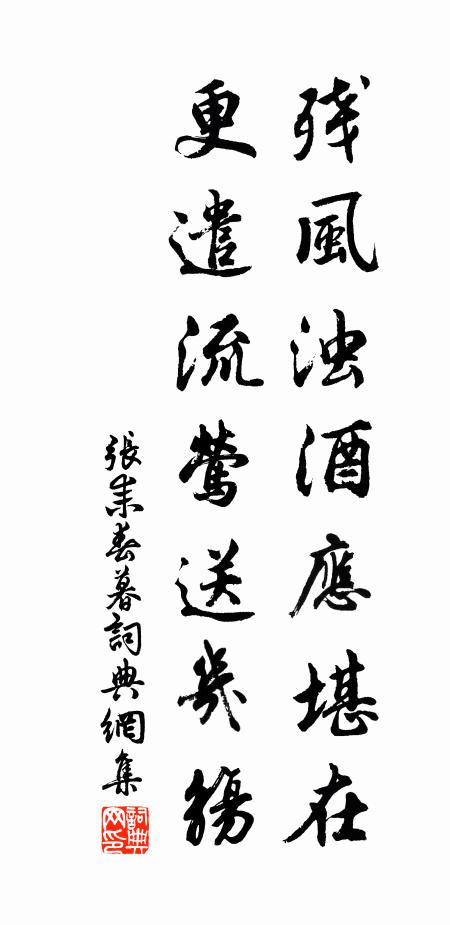 残風浊酒應堪在
更遣流鶯送幾觴
張耒春暮詞典網集
詞典网印